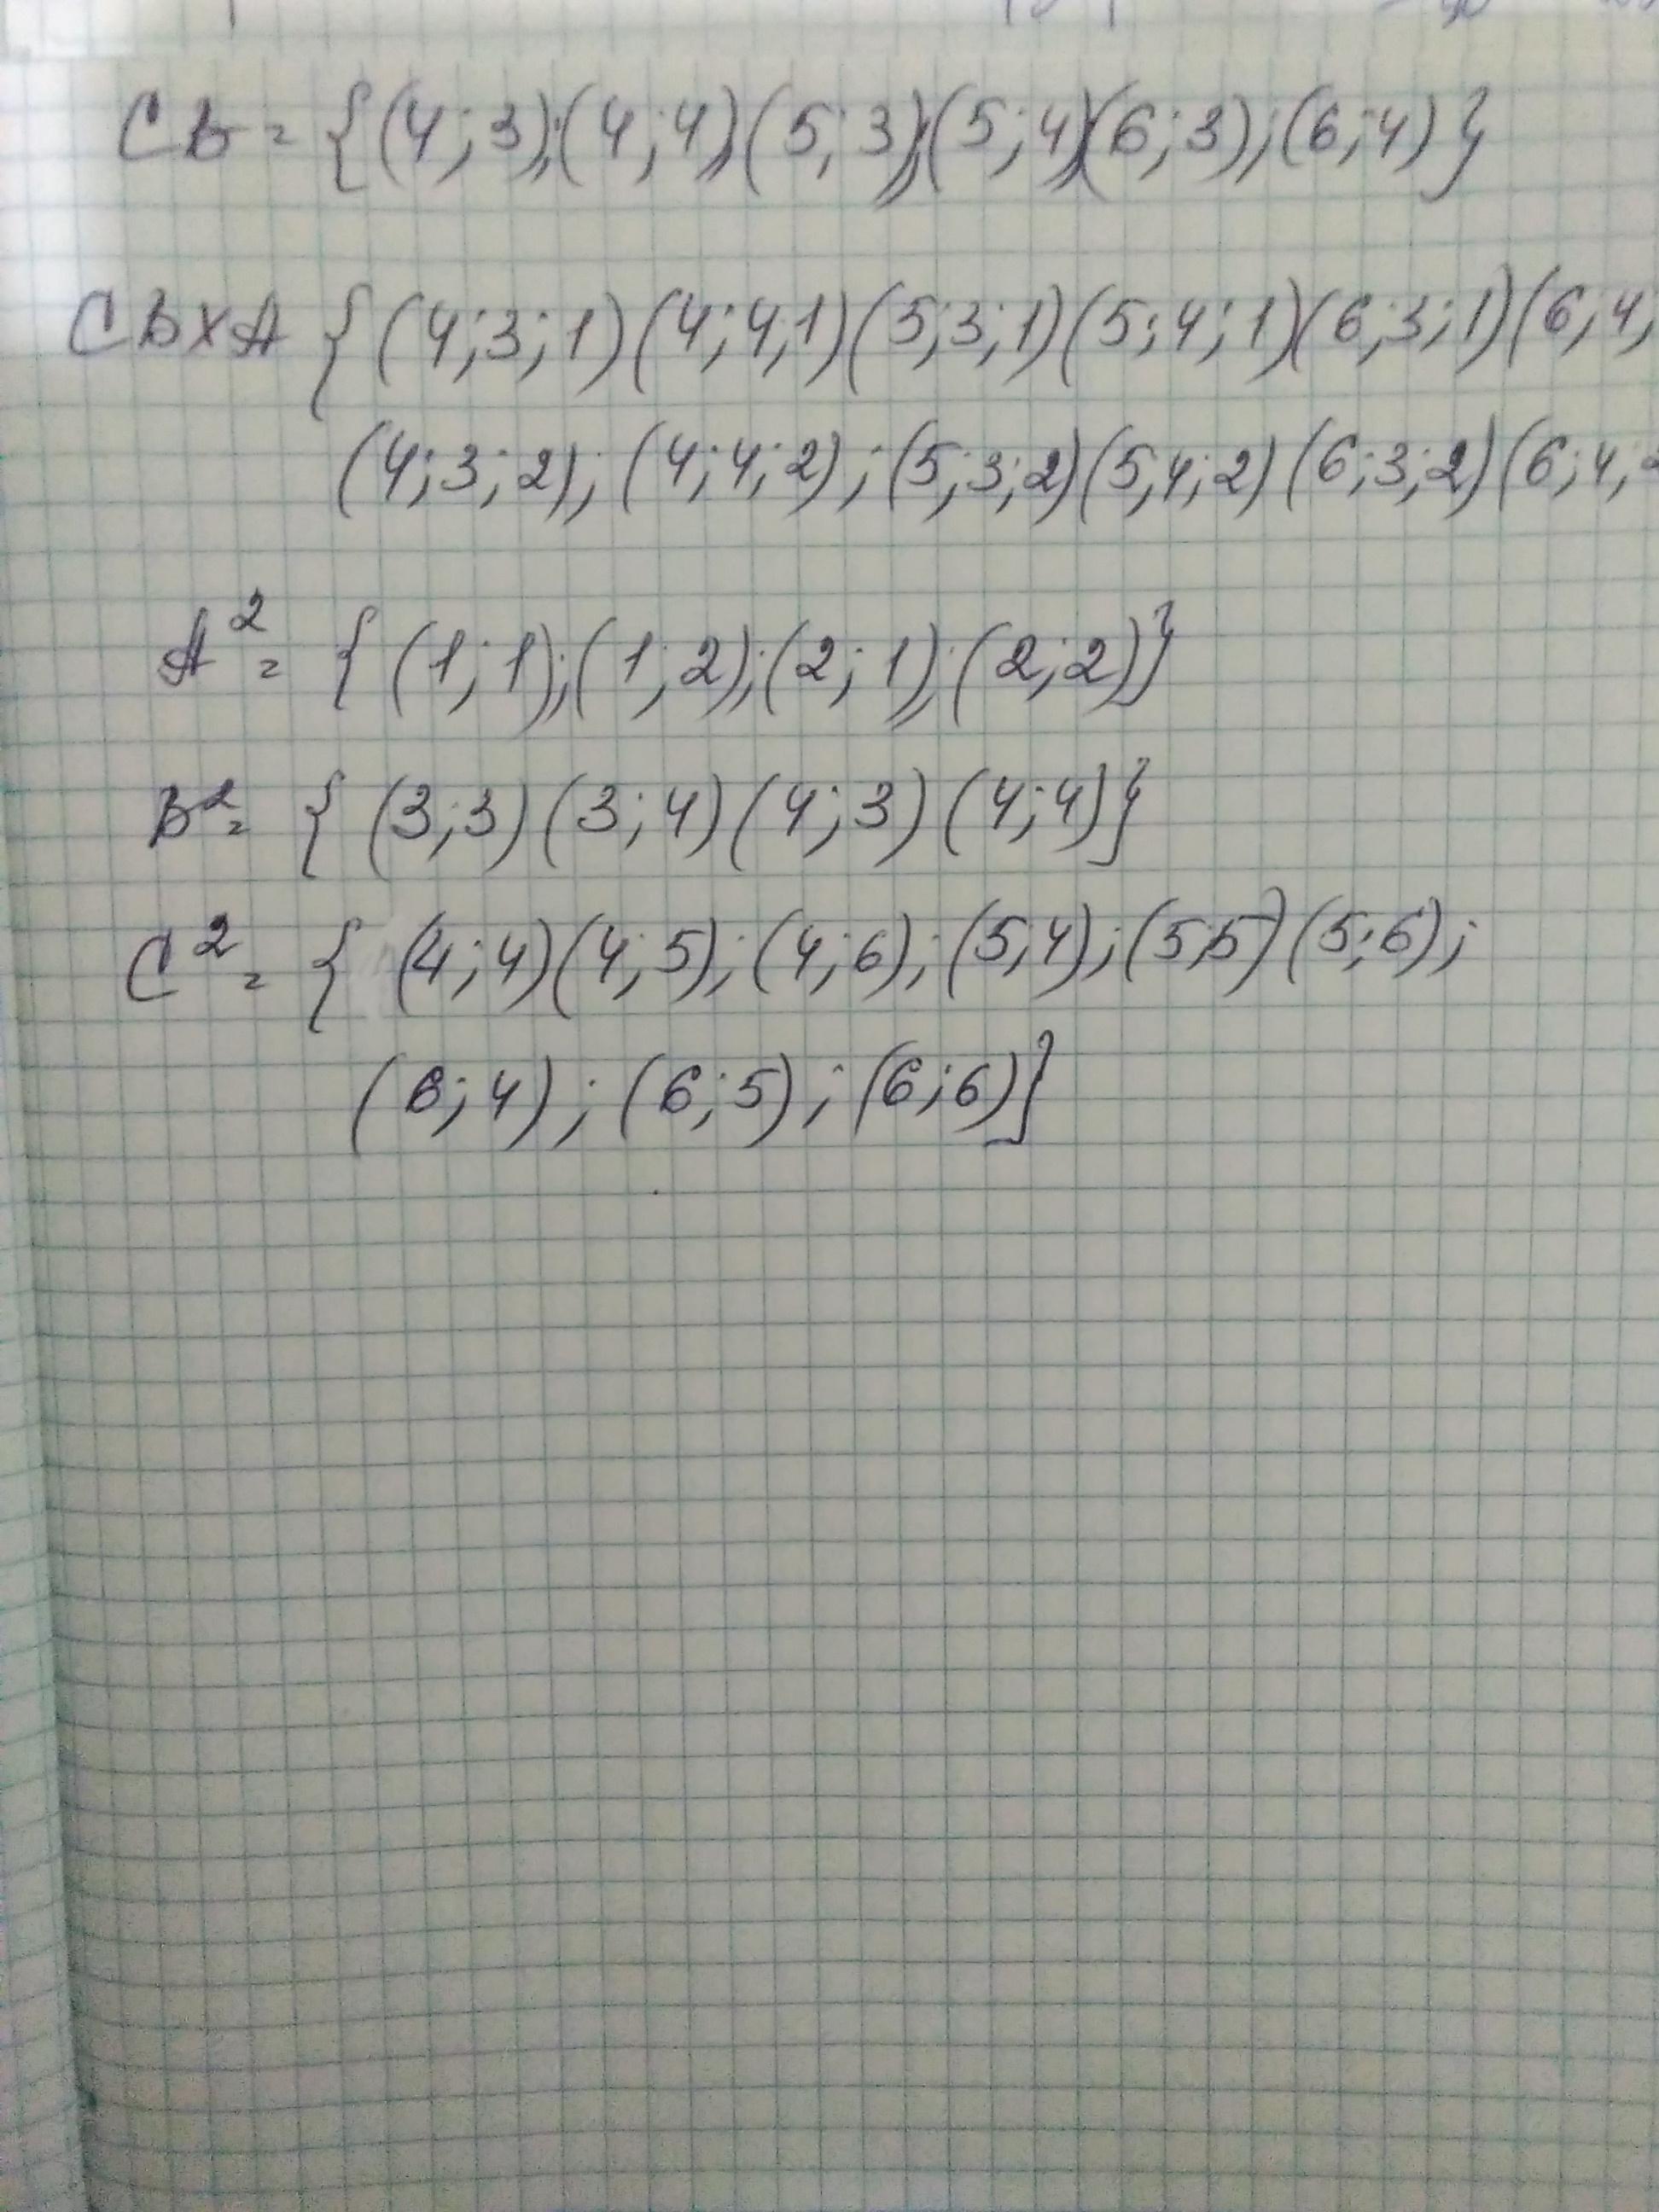 CB = {(4;3);(4;4)(5;3);(5;4)(6;3);(6;4)}
CB×A {(4;3;1)(4;4;1)(5;3;1)(5;4;1)(6;3;1)(6;4;
(4;3;2);(4;4;2);(5;3;2)(5;4;2)(6;3;2)(6;4;2
A² = {(1;1);(1;2);(2;1);(2;2)}
B² = {(3;3)(3;4)(4;3)(4;4)}
C² = {(4;4)(4;5);(4;6);(5;4);(5;5)(5;6);
(6;4);(6;5);(6;6)}